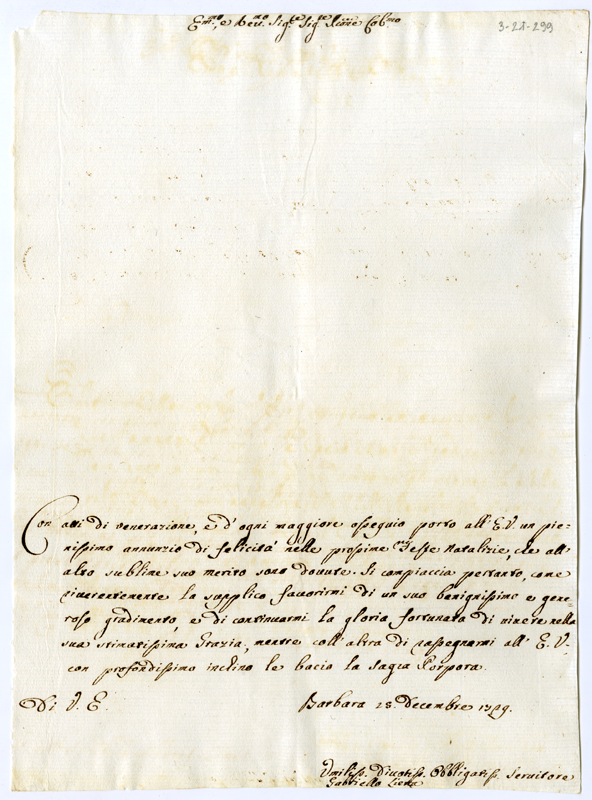 Em.mo, e Reu.mo Sig.re Sig.re Pne Col.mo
3-21-299
Con atti di venerazione, e d'ogni maggiore ossequio porto all'E.V. un pie-
nissimo annunzio di felicità nelle prossime S.me Feste Natalizie, che all'
alto sublime suo merito sono douute. Si compiaccia pertanto, come
riuerentemente la supplico fauorirmi di un suo benignissimo e gene-
roso gradimento, e di continuarmi la gloria fortunata di uiuere nella
sua stimatissima Grazia, mentre coll'altra di rassegnarmi all'E.V.
con profondissimo inchino le bacio la sagra Porpora.
Di V. E.
Barbara 25. Decembre
Umiliss. Diuotiss. Obbligatiss. Seruitore